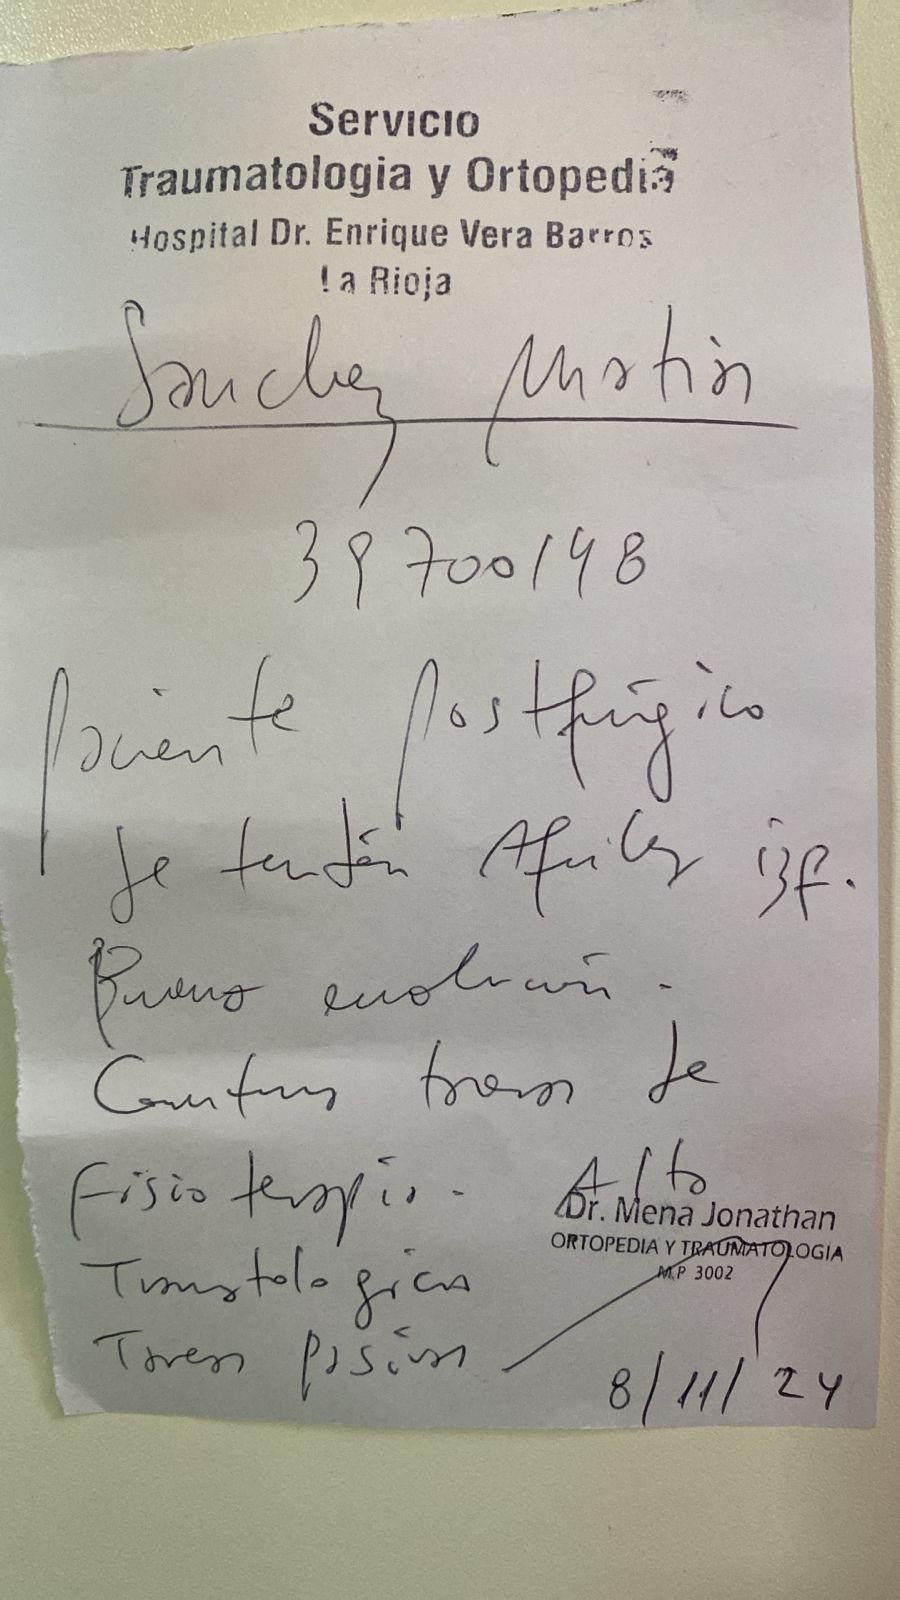 Servicio
Traumatologia y Ortopedia
Hospital Dr. Enrique Vera Barros
La Rioja
Sanchez Matias
39700148
Paciente postqúrgico
de tendón Aquiles izq.
Buena evolución.
Continua tareas de
Fisioterapia. Alta
Dr. Mena Jonathan
ORTOPEDIA Y TRAUMATOLOGIA
M.P 3002
Traumatologica
Tareas pasivas
8/11/24